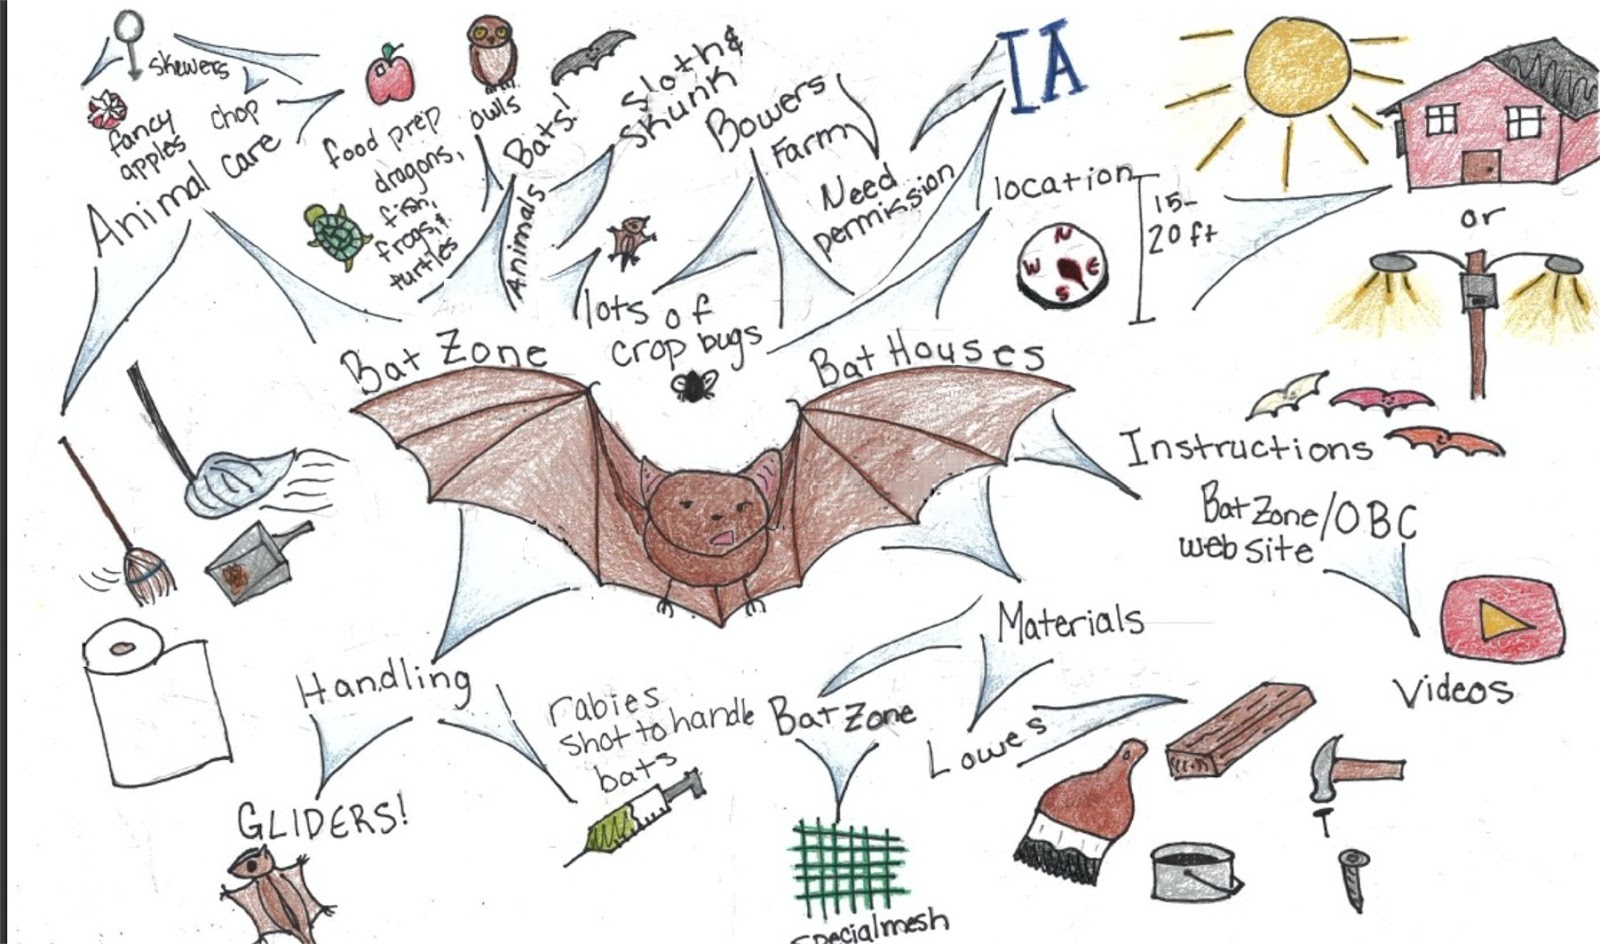 skewers
fancy
apples
chop
Animal Care
food prep
dragons,
fish,
frogs, &
turtles
owls
Bats!
Sloth &
skunk
Animals
Bowers
Farm
Need
permission
IA
location
N
W E
S
15-
20 ft
or
lots of
crop bugs
Bat Zone
Bat Houses
Instructions
Bat Zone/OBC
web site
Videos
Materials
Handling
rabies
shot to handle
bats
Bat Zone
Lowes
GLIDERS!
special mesh